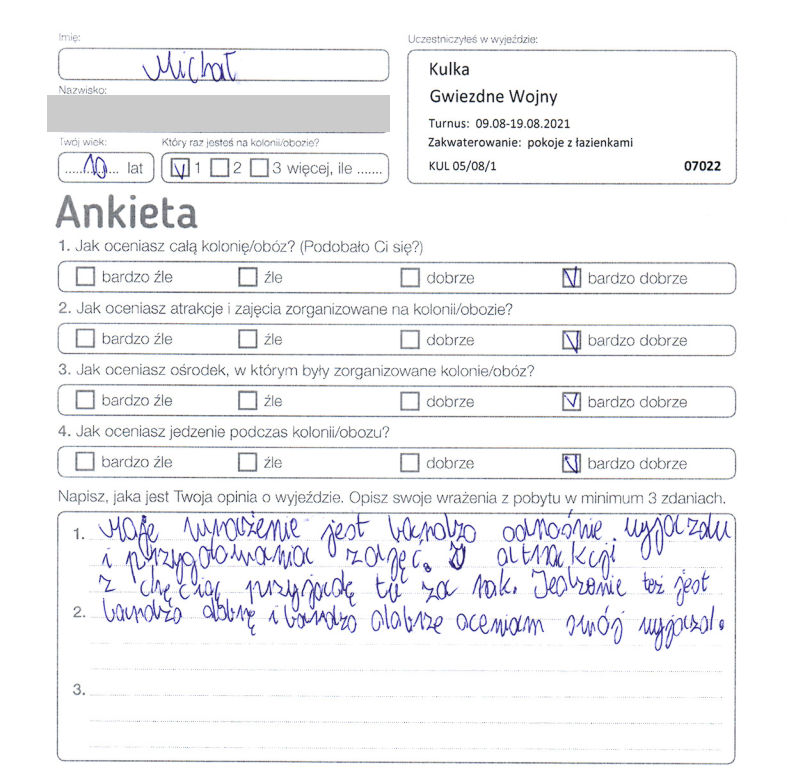 Imię:
Michał
Nazwisko:
Twój wiek:
10 lat
Który raz jesteś na kolonii/obozie?
V 1 2 3 więcej, ile .......
Uczestniczyłeś w wyjeździe:
Kulka
Gwiezdne Wojny
Turnus: 09.08-19.08.2021
Zakwaterowanie: pokoje z łazienkami
KUL 05/08/1 07022
Ankieta
1. Jak oceniasz całą kolonię/obóz? (Podobało Ci się?)
bardzo źle źle dobrze V bardzo dobrze
2. Jak oceniasz atrakcje i zajęcia zorganizowane na kolonii/obozie?
bardzo źle źle dobrze V bardzo dobrze
3. Jak oceniasz ośrodek, w którym były zorganizowane kolonie/obóz?
bardzo źle źle dobrze V bardzo dobrze
4. Jak oceniasz jedzenie podczas kolonii/obozu?
bardzo źle źle dobrze V bardzo dobrze
Napisz, jaka jest Twoja opinia o wyjeździe. Opisz swoje wrażenia z pobytu w minimum 3 zdaniach.
1. Moje wrażenie jest bardzo odnośnie wyjazdu
i przygotowania zajęć. atrakcji
z chęcią przyjadę tu za rok. Jedzenie też jest
2. bardzo dobrę i bardzo dobrze oceniam swój wyjazd.
3.